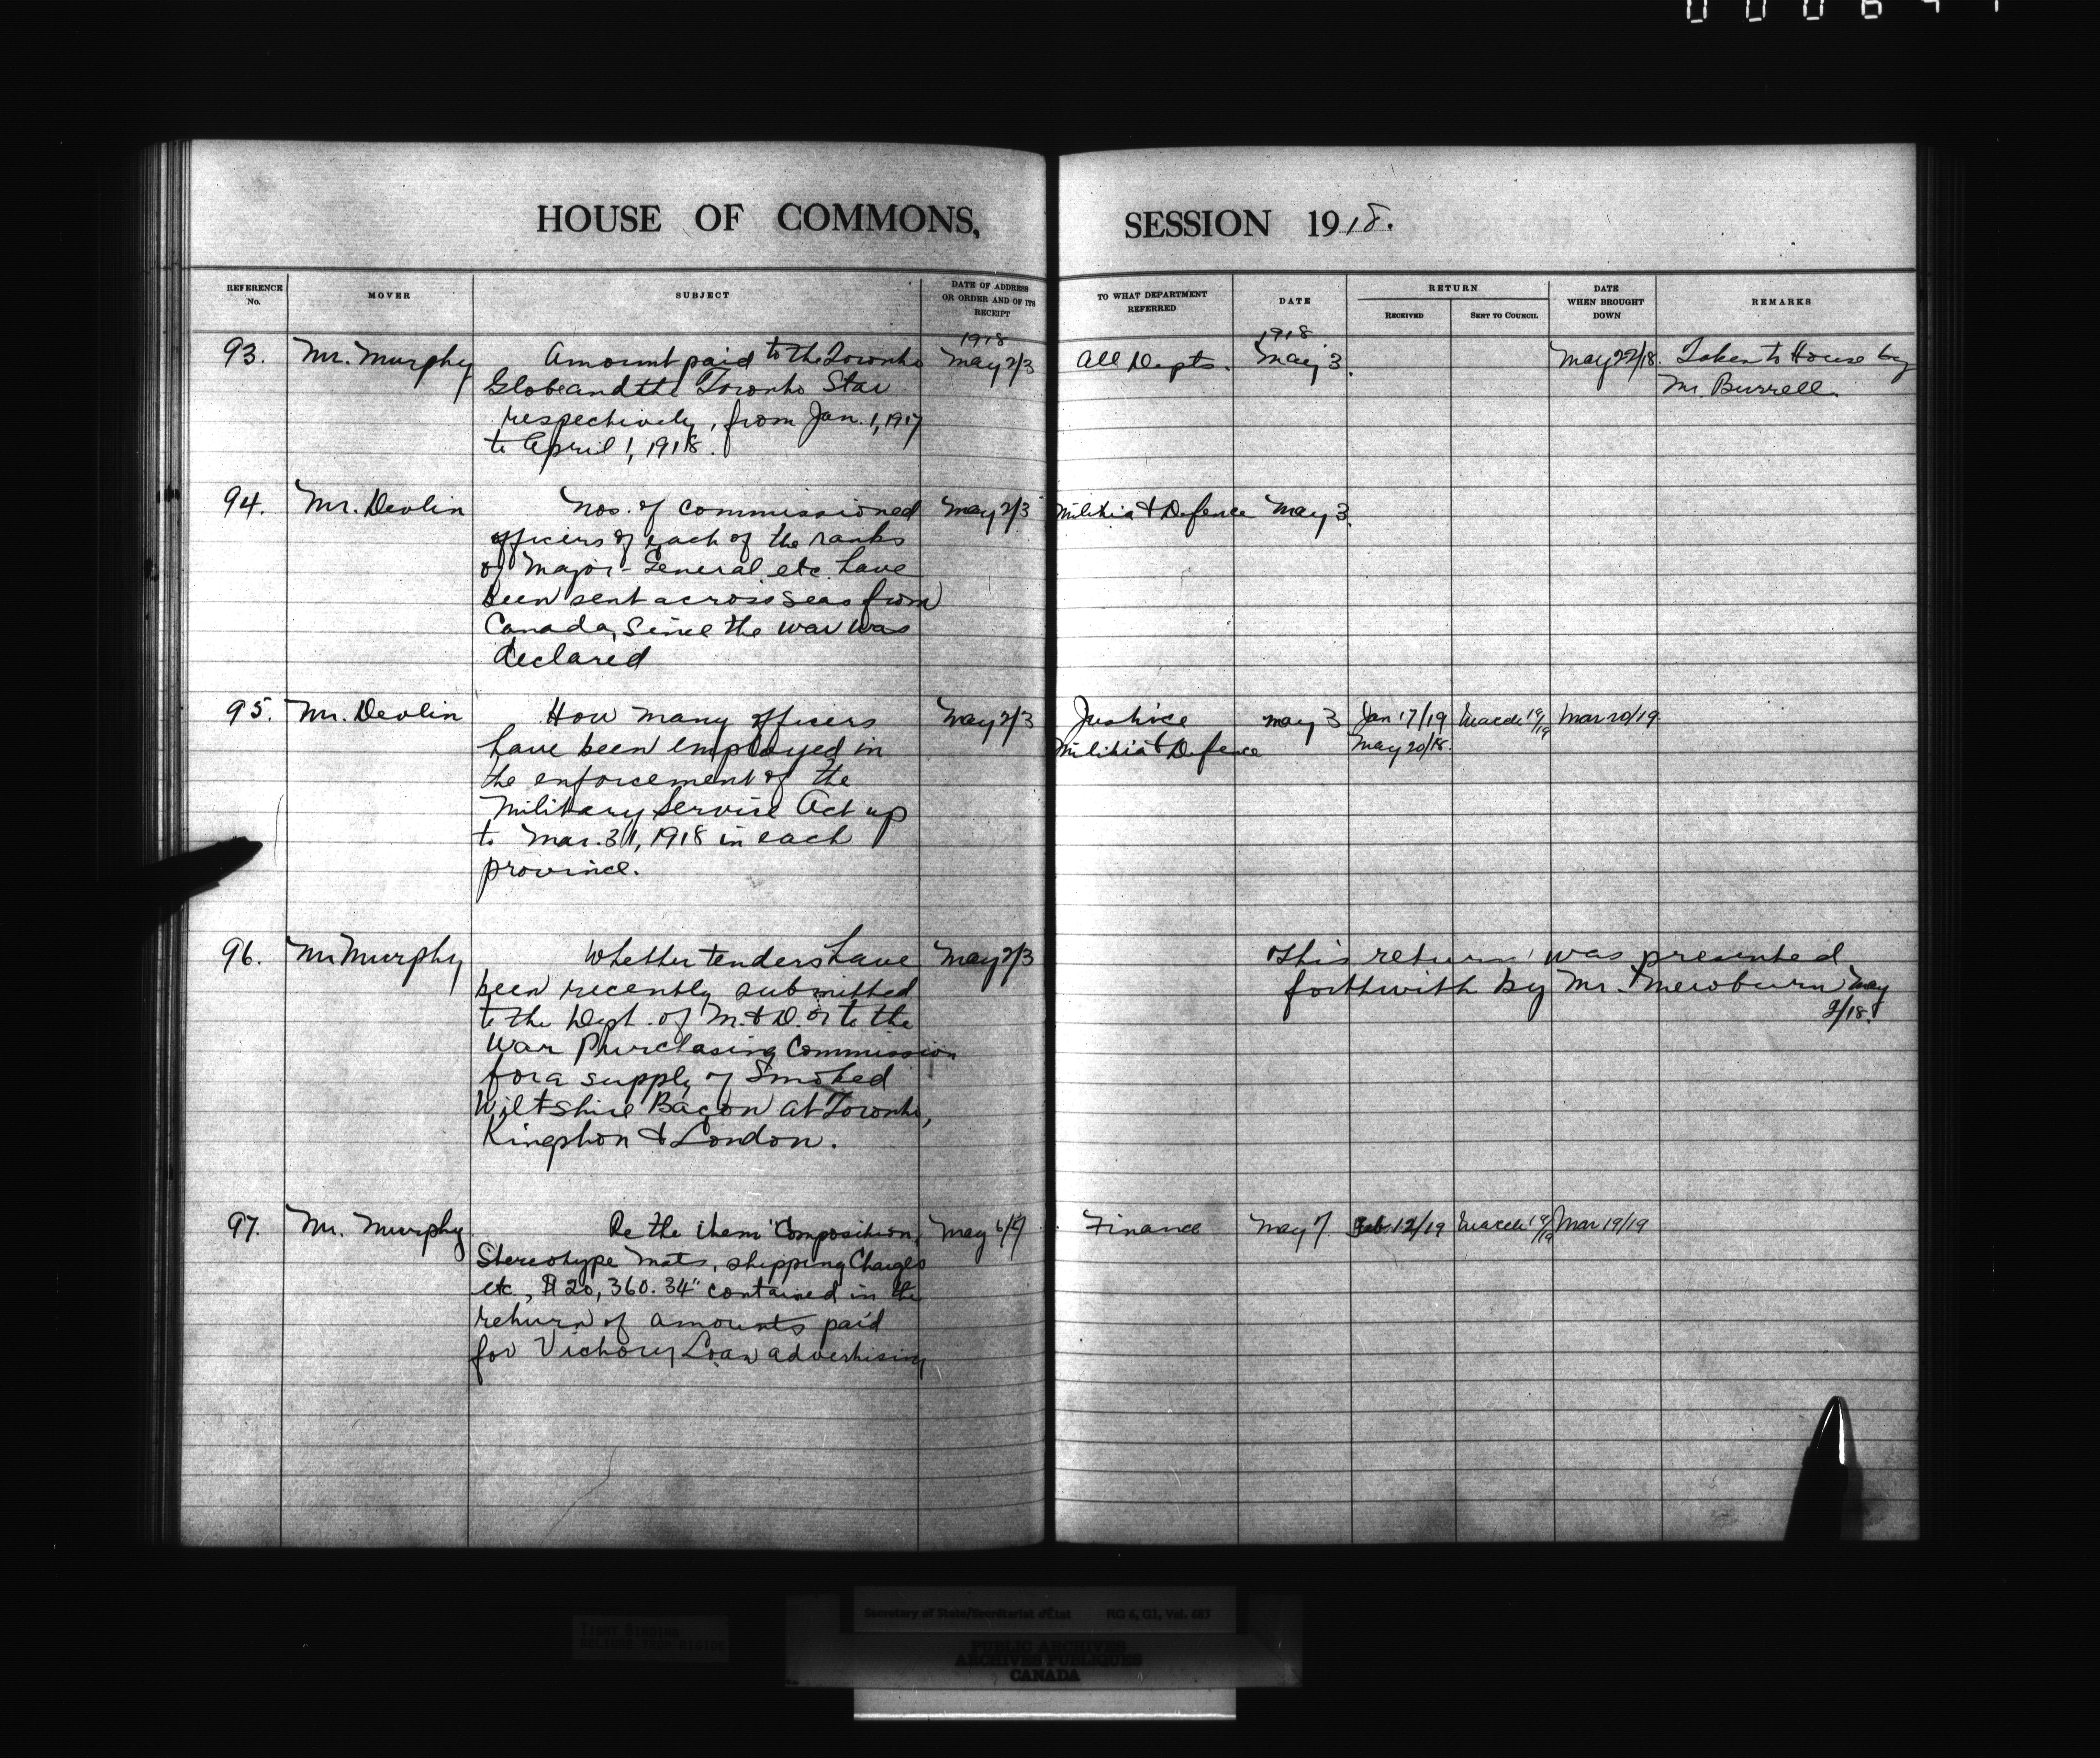 HOUSE OF COMMONS, SESSION 1918.
REFERENCE No. MOVER SUBJECT DATE OF ADDRESS OR ORDER AND OF ITS RECEIPT TO WHAT DEPARTMENT REFERRED DATE RETURN RECEIVED SENT TO COUNCIL DATE WHEN BROUGHT DOWN REMARKS
1918 1918
93. Mr. Murphy Amount paid to the Toronto May 2/3 All Depts. May 3. May 22/18. Taken to House by
Globe and the Toronto Star Mr. Burrell.
respectively, from Jan. 1, 1917
to April 1, 1918.
94. Mr. Devlin Nos. of commissioned May 2/3 Militia & Defence May 3.
officers of each of the ranks
of Major-General etc. have
been sent across seas from
Canada, since the war was
declared
95. Mr. Devlin How many officers May 2/3 Justice May 3 Jan 17/19 March 19/19 Mar 20/19.
have been employed in Militia & Defence May 20/18.
the enforcement of the
Military Service Act up
to Mar. 31, 1918 in each
province.
96. Mr Murphy Whether tenders have May 2/3 This return was presented
been recently submitted forthwith by Mr. Mewburn May
to the Dept. of M. & D. or to the 2/18.
War Purchasing Commission
for a supply of Smoked
Wiltshire Bacon at Toronto,
Kingston & London.
97. Mr. Murphy Re the item "Composition, May 6/7 Finance May 7. Feb. 12/19 March 19/19 Mar 19/19
Stereotype mats, shipping Charges
etc, $20,360.34" contained in the
return of amounts paid
for Victory Loan advertising
TIGHT BINDING
RELIURE TROP RIGIDE
Secretary of State/Secrétariat d'État RG 6, G1, Vol. 683
PUBLIC ARCHIVES
ARCHIVES PUBLIQUES
CANADA